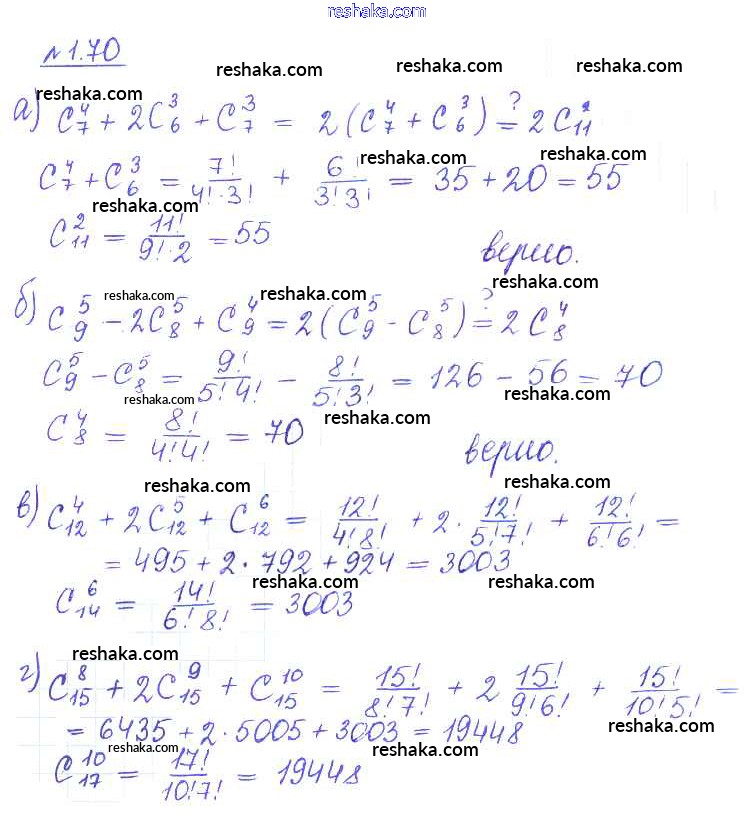 reshaka.com
№ 1.70
reshaka.com reshaka.com reshaka.com
а) C₇⁴ + 2C₆³ + C₇³ = 2(C₇⁴ + C₆³) ≟ 2C₁₁²
reshaka.com reshaka.com
C₇⁴ + C₆³ = 7!/(4!·3!) + 6!/(3!3!) = 35 + 20 = 55
reshaka.com reshaka.com
C₁₁² = 11!/(9!·2) = 55 верно.
reshaka.com reshaka.com reshaka.com
б) C₉⁵ - 2C₈⁵ + C₉⁴ = 2(C₉⁵ - C₈⁵) ≟ 2C₈⁴
reshaka.com
C₉⁵ - C₈⁵ = 9!/(5!4!) - 8!/(5!3!) = 126 - 56 = 70
reshaka.com reshaka.com reshaka.com
C₈⁴ = 8!/(4!4!) = 70 верно.
reshaka.com reshaka.com
в) C₁₂⁴ + 2C₁₂⁵ + C₁₂⁶ = 12!/(4!8!) + 2·12!/(5!7!) + 12!/(6!6!) =
reshaka.com
= 495 + 2·792 + 924 = 3003
reshaka.com reshaka.com
C₁₄⁶ = 14!/(6!8!) = 3003
reshaka.com reshaka.com reshaka.com
г) C₁₅⁸ + 2C₁₅⁹ + C₁₅¹⁰ = 15!/(8!7!) + 2 15!/(9!6!) + 15!/(10!5!) =
= 6435 + 2·5005 + 3003 = 19448
reshaka.com reshaka.com reshaka.com
C₁₇¹⁰ = 17!/(10!7!) = 19448